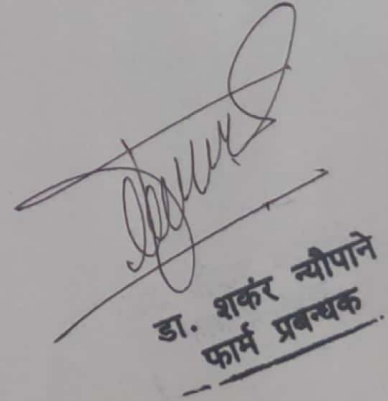 डा. शकंर न्यौपाने
फार्म प्रबन्धक